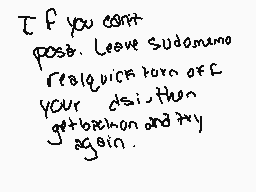 If you cant
post. Leave sudomemo
realquick turn off
your dsi, then
get back on and try
again.